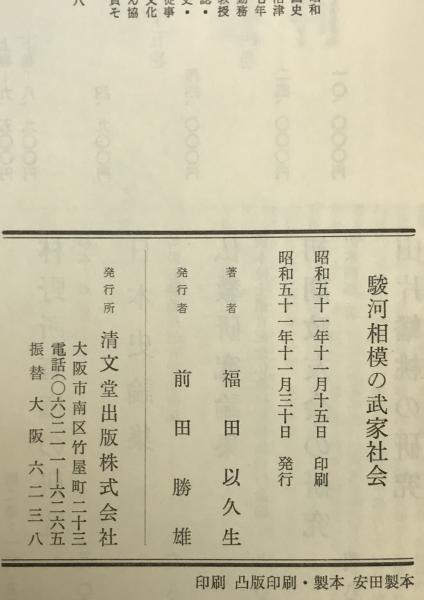 駿河相模の武家社会
昭和五十一年十一月十五日 印刷
昭和五十一年十一月三十日 発行
著者 福田以久生
発行者 前田勝雄
発行所 清文堂出版株式会社
大阪市南区竹屋町二十三
電話(〇六)二一一―六二六五
振替大阪六二三八
印刷 凸版印刷・製本 安田製本